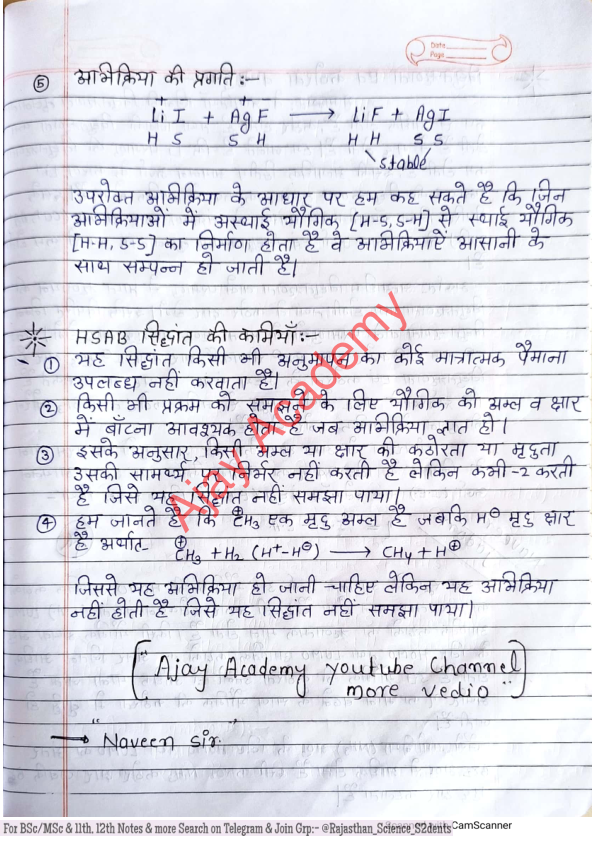 Date
Page
⑤ अभिक्रिया की प्रगति:-
+ - +
Li I + Ag F ⟶ LiF + AgI
H S S H H H S S
stable
उपरोक्त अभिक्रिया के आधार पर हम कह सकते है कि जिन
अभिक्रियाओं में अस्थाई यौगिक [H-S,S-H] से स्थाई यौगिक
[H-H, S-S] का निर्माण होता है वे अभिक्रियाऐं आसानी के
साथ सम्पन्न हो जाती है।
HSAB सिद्धांत की कमियाँ:-
① यह सिद्धांत किसी भी अनुमापन का कोई मात्रात्मक पैमाना
उपलब्ध नहीं करवाता है।
② किसी भी प्रक्रम को समझने के लिए यौगिक को अम्ल व क्षार
में बाँटना आवश्यक होता है जब अभिक्रिया ज्ञात हो।
③ इसके अनुसार, किसी अम्ल या क्षार की कठोरता या मृदुता
उसकी सामर्थ्य पर निर्भर नहीं करती है लेकिन कभी-2 करती
है जिसे यह सिद्धांत नहीं समझा पाया।
④ हम जानते है कि ⊕CH₃ एक मृदु अम्ल है जबकि H⊖ मृदु क्षार
है अर्थात- ⊕CH₃ + H₂ (H⁺-H⊖) ⟶ CH₄ + H⊕
जिससे यह अभिक्रिया हो जानी चाहिए लेकिन यह अभिक्रिया
नहीं होती है जिसे यह सिद्धांत नहीं समझा पाया।
Ajay Academy
["Ajay Academy youtube Channel
more vedio"]
→ Naveen sir.
For BSc/MSc & 11th, 12th Notes & more Search on Telegram & Join Grp:- @Rajasthan_Science_S2dents
CamScanner